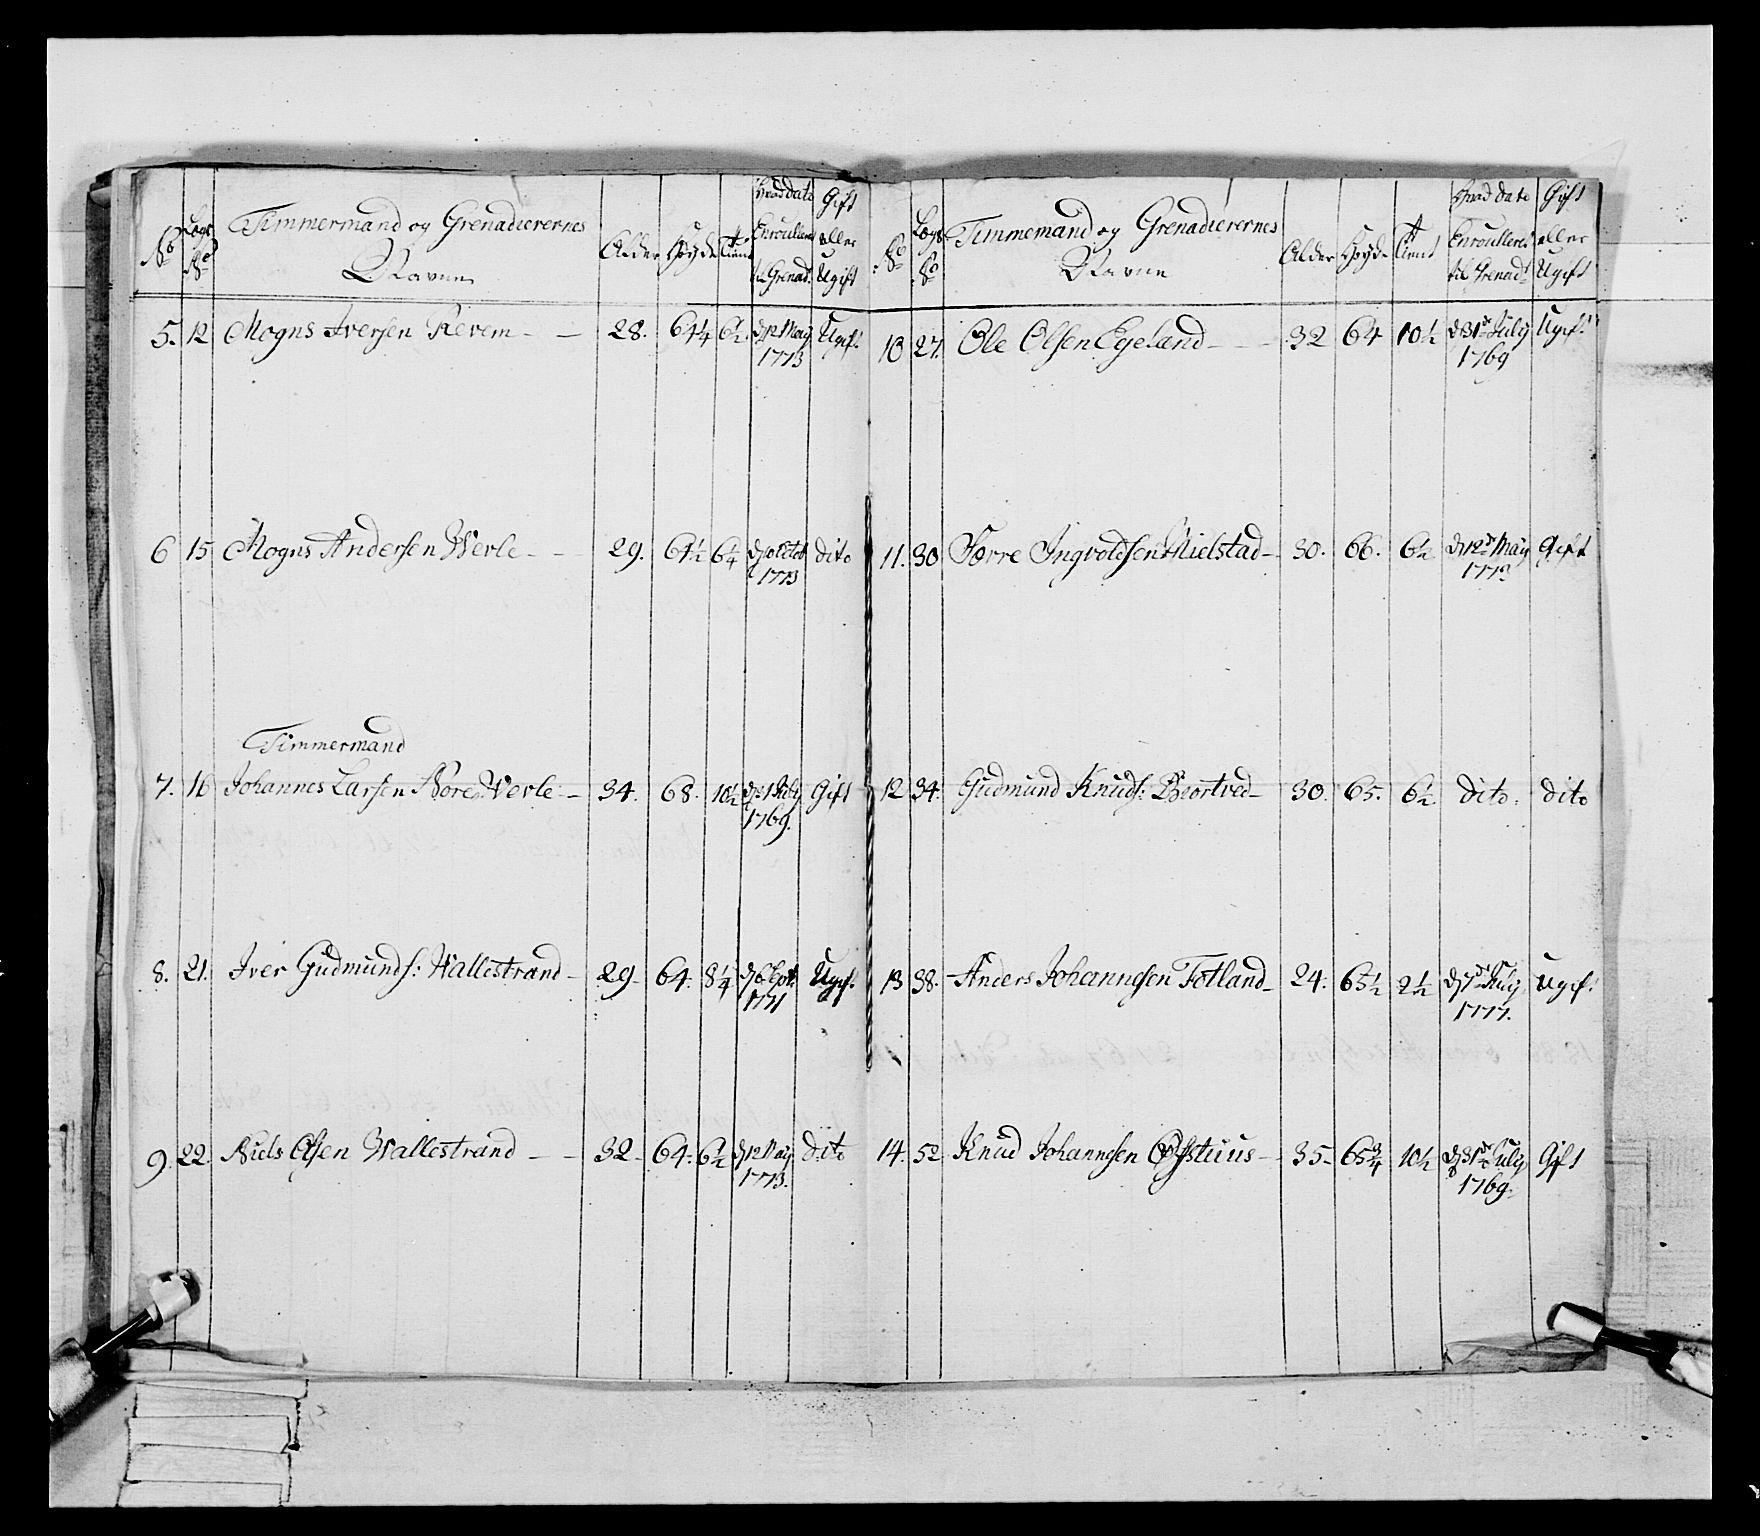 No Logs No Timmermand og Grenadierernes Navne Alder Høyde Tient Hvad dato Enroulleret til Grenad: Gift eller Ugift
5. 12 Mogns Iversen Revem - - 28. 64¼ 6½ d 12 May 1773 Ugift
6 15 Mogns Andersen Werle - - 29. 64½ 6¼ 1773 dito
Timmermand
7. 16 Johannes Larsen Nore Werle - 34. 68. 10½ d 31 July 1769. Gift
8. 21. Iver Gudmunds: Wallestrand - 29- 64. 8¼ 1771 Ugif:
9. 22 Niels Olsen Wallestrand - - 32- 64. 6½ d 12 May 1773. dito
No Logs No Timmemand og Grenadierernes Navne Alder Høyde Tient Hvad dato Enrolleret til Grenad: Gift eller Ugift
10 27. Ole Olsen Egeland - - - 32 64 10½ d 31te July 1769 Ugif:
11. 30 Tørre Ingvoldsen Mielstad - 30. 66. 6½ d 12te May 1773 Gift
12 34. Gudmund Knuds: Biortved - 30. 65. 6½ dito. dito
13 38. Anders Johannesen Fotland - 24. 65½ 2½ July 1777. Ugif:
14. 52 Knud Johannesen - 35- 65¾ 10½ d 31te July 1769. Gift